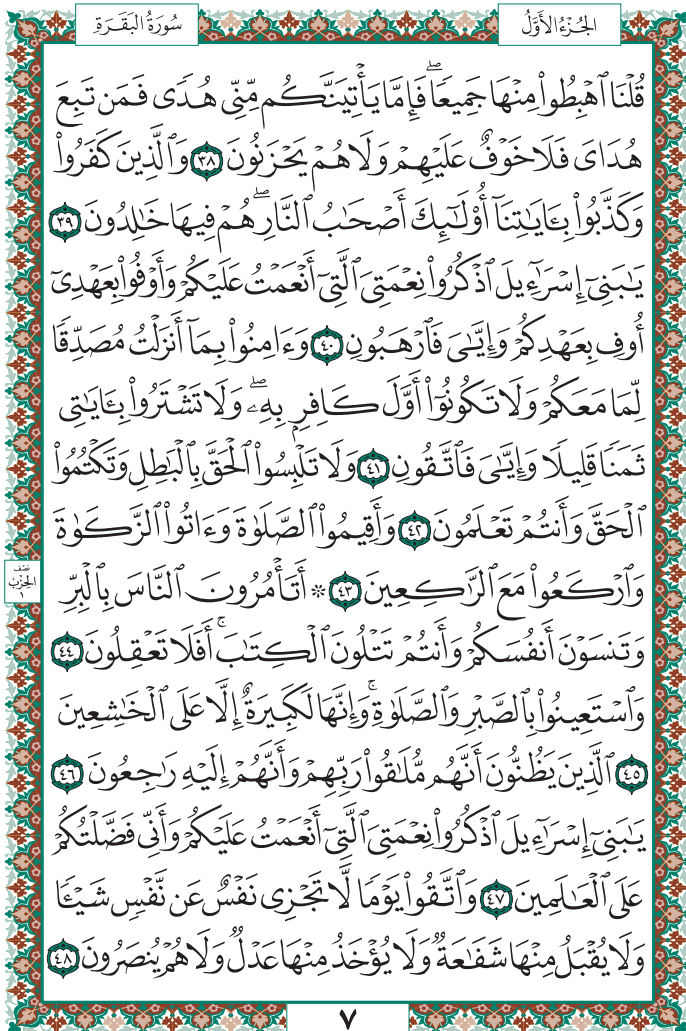 الجُزْءُ الأَوَّلُ
سُورَةُ البَقَرَةِ
قُلْنَا ٱهْبِطُوا۟ مِنْهَا جَمِيعًاۖ فَإِمَّا يَأْتِيَنَّكُم مِّنِّى هُدًى فَمَن تَبِعَ
هُدَاىَ فَلَا خَوْفٌ عَلَيْهِمْ وَلَا هُمْ يَحْزَنُونَ ٣٨ وَٱلَّذِينَ كَفَرُوا۟
وَكَذَّبُوا۟ بِـَٔايَـٰتِنَآ أُو۟لَـٰٓئِكَ أَصْحَـٰبُ ٱلنَّارِۖ هُمْ فِيهَا خَـٰلِدُونَ ٣٩
يَـٰبَنِىٓ إِسْرَٰٓءِيلَ ٱذْكُرُوا۟ نِعْمَتِىَ ٱلَّتِىٓ أَنْعَمْتُ عَلَيْكُمْ وَأَوْفُوا۟ بِعَهْدِىٓ
أُوفِ بِعَهْدِكُمْ وَإِيَّـٰىَ فَٱرْهَبُونِ ٤٠ وَءَامِنُوا۟ بِمَآ أَنزَلْتُ مُصَدِّقًا
لِّمَا مَعَكُمْ وَلَا تَكُونُوٓا۟ أَوَّلَ كَافِرٍۭ بِهِۦۖ وَلَا تَشْتَرُوا۟ بِـَٔايَـٰتِى
ثَمَنًا قَلِيلًا وَإِيَّـٰىَ فَٱتَّقُونِ ٤١ وَلَا تَلْبِسُوا۟ ٱلْحَقَّ بِٱلْبَـٰطِلِ وَتَكْتُمُوا۟
ٱلْحَقَّ وَأَنتُمْ تَعْلَمُونَ ٤٢ وَأَقِيمُوا۟ ٱلصَّلَوٰةَ وَءَاتُوا۟ ٱلزَّكَوٰةَ
وَٱرْكَعُوا۟ مَعَ ٱلرَّٰكِعِينَ ٤٣ ۞ أَتَأْمُرُونَ ٱلنَّاسَ بِٱلْبِرِّ
نِصْفُ
الحِزْبِ
١
وَتَنسَوْنَ أَنفُسَكُمْ وَأَنتُمْ تَتْلُونَ ٱلْكِتَـٰبَۚ أَفَلَا تَعْقِلُونَ ٤٤
وَٱسْتَعِينُوا۟ بِٱلصَّبْرِ وَٱلصَّلَوٰةِۚ وَإِنَّهَا لَكَبِيرَةٌ إِلَّا عَلَى ٱلْخَـٰشِعِينَ
٤٥ ٱلَّذِينَ يَظُنُّونَ أَنَّهُم مُّلَـٰقُوا۟ رَبِّهِمْ وَأَنَّهُمْ إِلَيْهِ رَٰجِعُونَ ٤٦
يَـٰبَنِىٓ إِسْرَٰٓءِيلَ ٱذْكُرُوا۟ نِعْمَتِىَ ٱلَّتِىٓ أَنْعَمْتُ عَلَيْكُمْ وَأَنِّى فَضَّلْتُكُمْ
عَلَى ٱلْعَـٰلَمِينَ ٤٧ وَٱتَّقُوا۟ يَوْمًا لَّا تَجْزِى نَفْسٌ عَن نَّفْسٍ شَيْـًٔا
وَلَا يُقْبَلُ مِنْهَا شَفَـٰعَةٌ وَلَا يُؤْخَذُ مِنْهَا عَدْلٌ وَلَا هُمْ يُنصَرُونَ ٤٨
٧